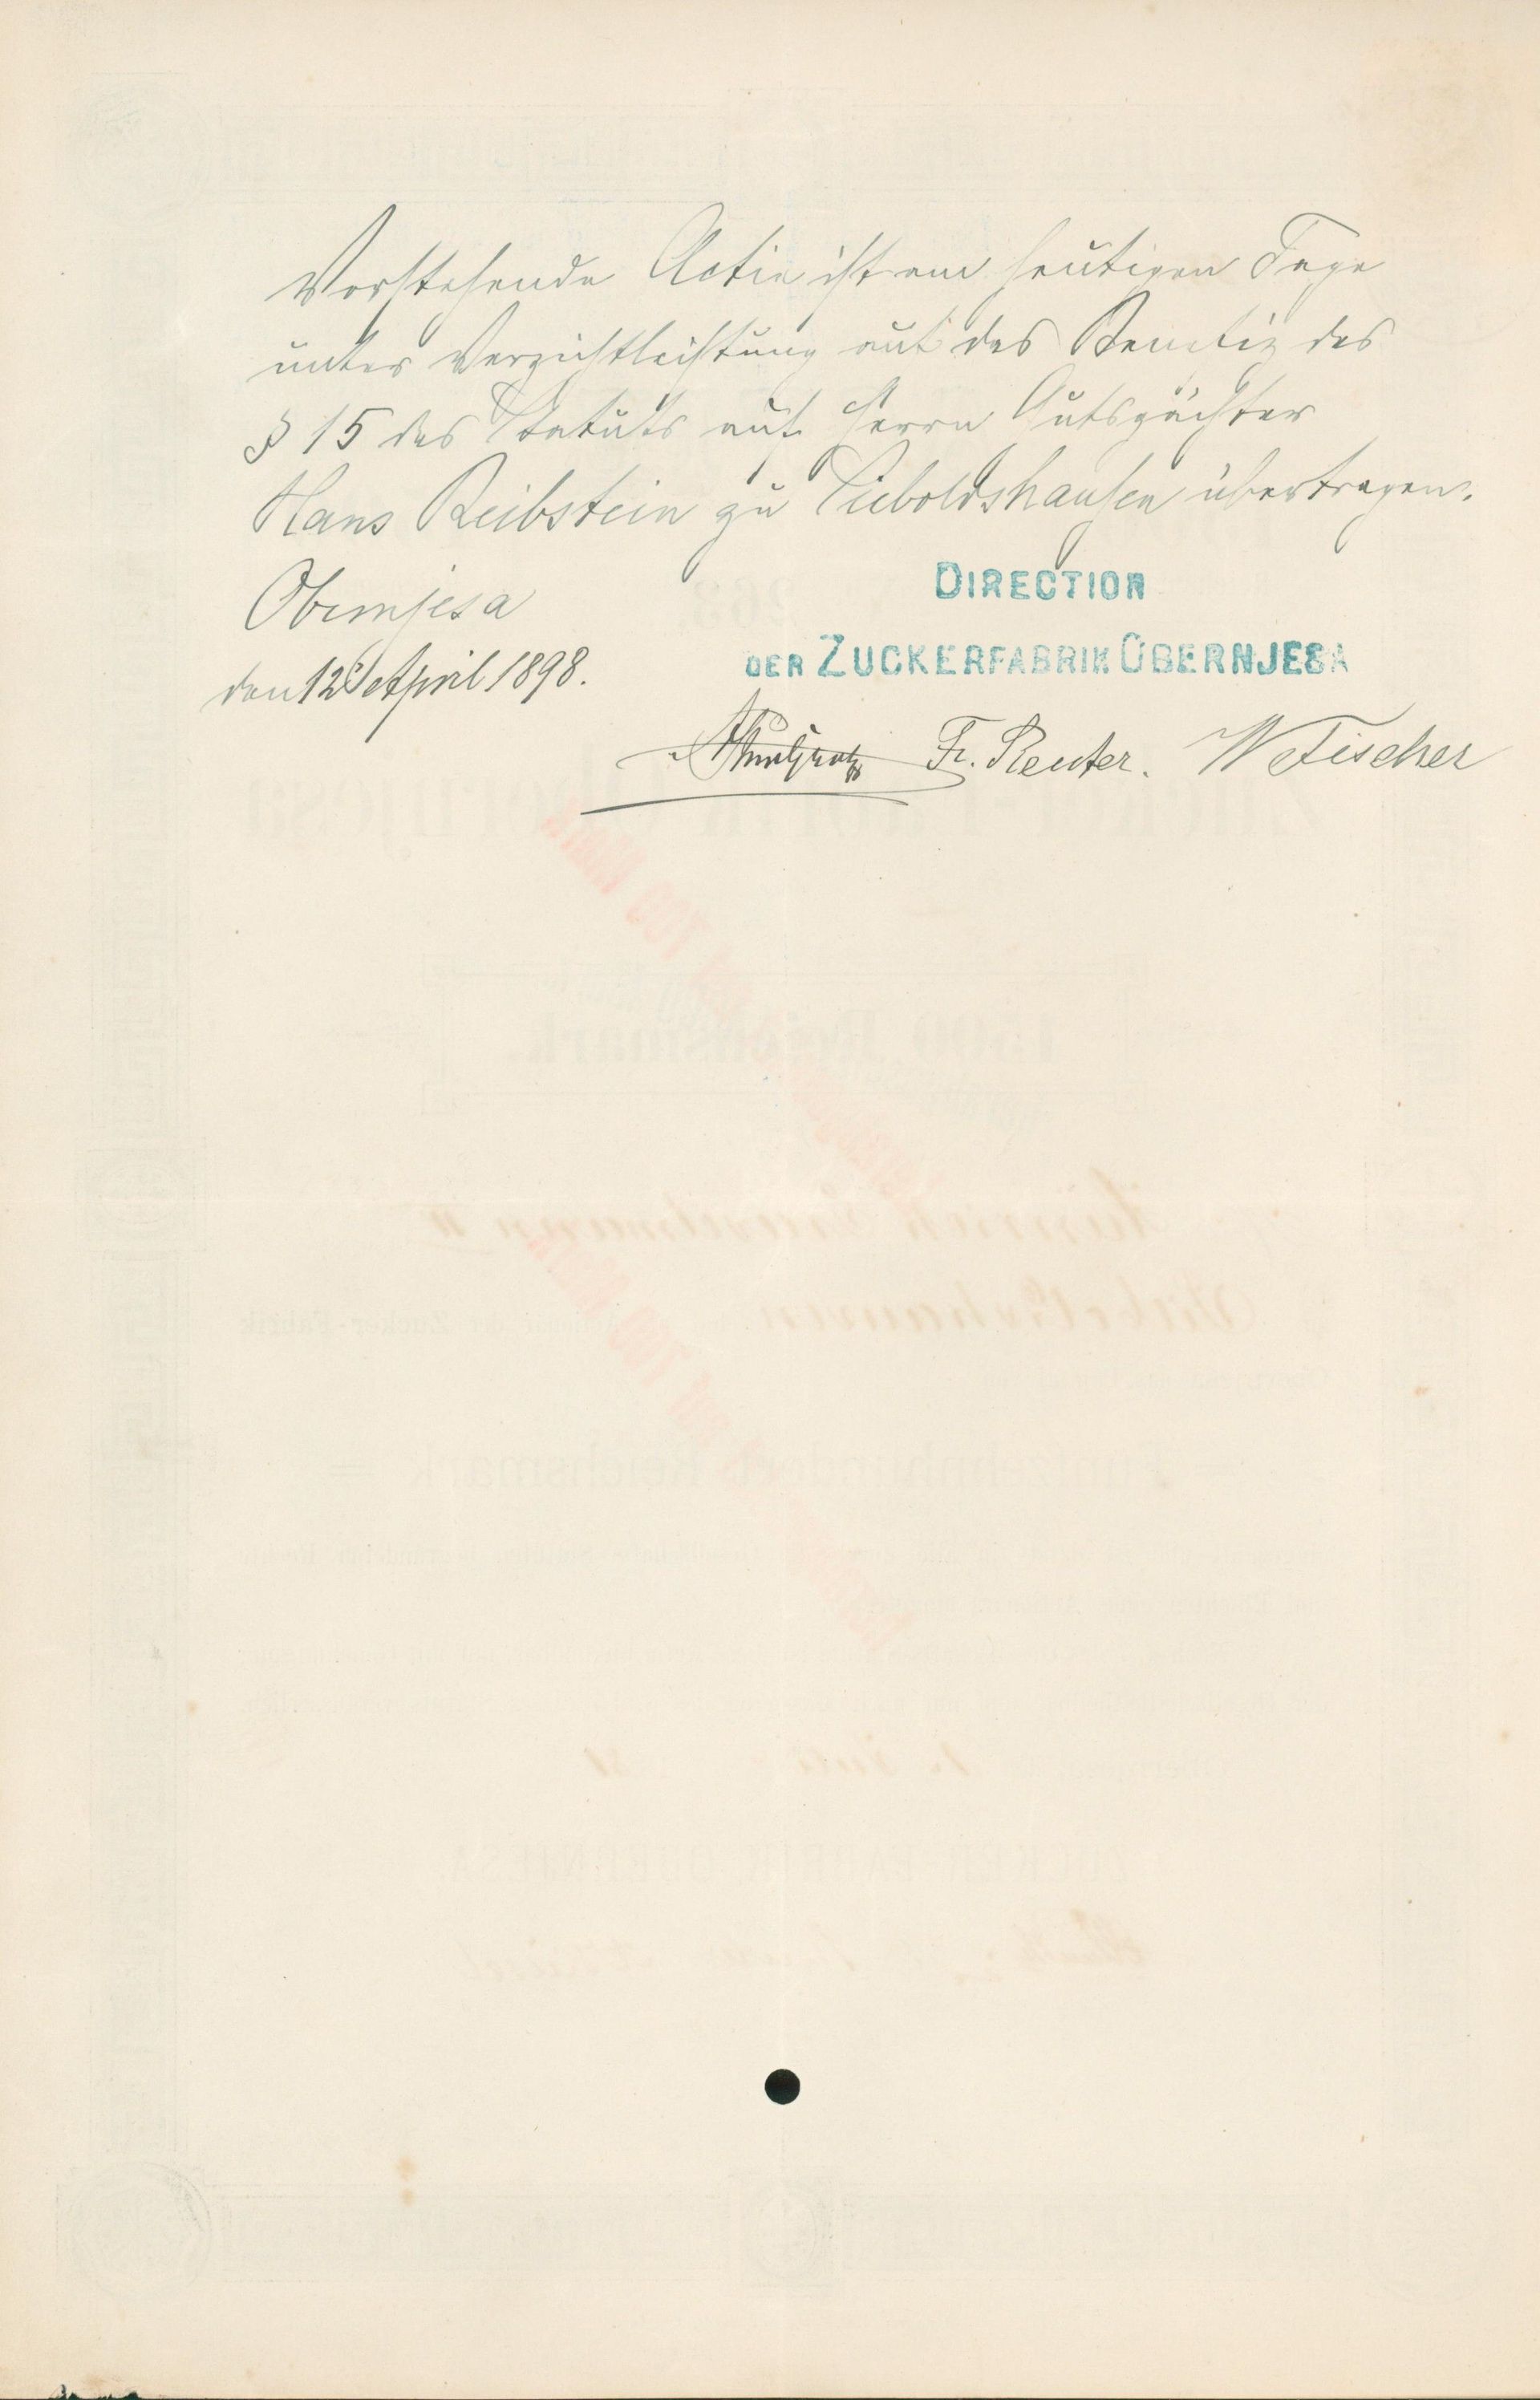 Vorstehende Actie ist am heutigen Tage
unter Verzichtleistung auf das Benefiz des
§ 15 des Statuts auf Herrn Gutspächter
Hans Reibstein zu Sieboldshausen übertragen.
Obernjesa
den 12 April 1898.
DIRECTION
DER ZUCKERFABRIK OBERNJESA
Fr. Reuter. W Fischer
1500 Reichsmark